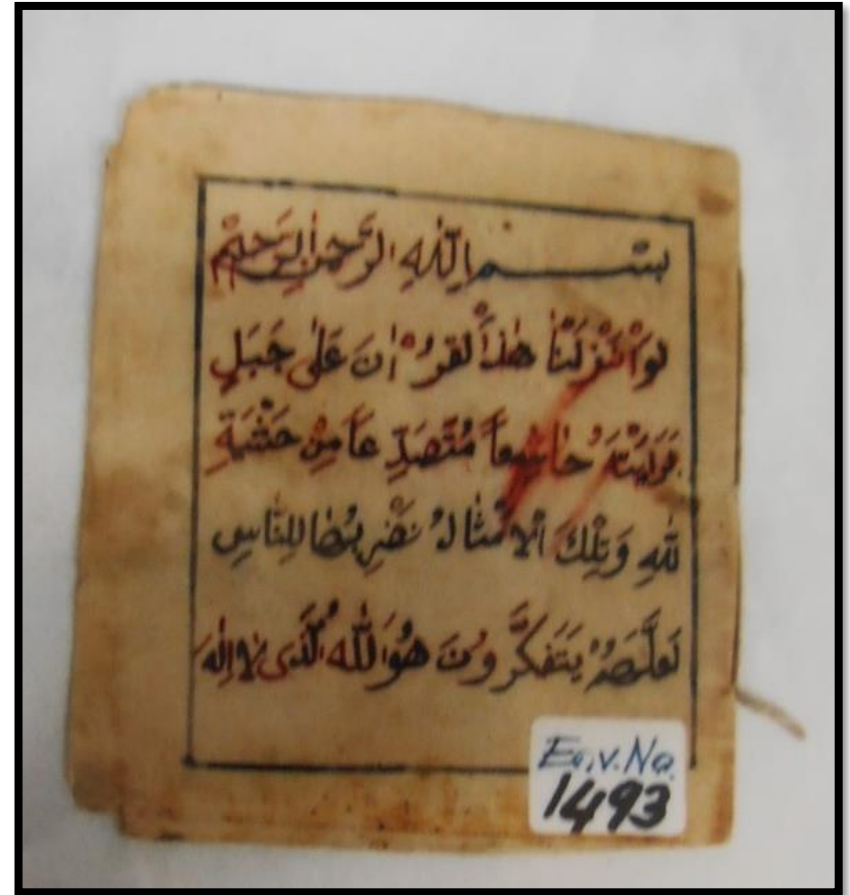 بِسْمِ اللّٰهِ الرَّحْمٰنِ الرَّحِيْمِ
لَوْاَنْزَلْنَا هٰذَاالْقُرْاٰنَ عَلٰى جَبَلٍ
فَرَاَيْتَهُ خَاشِعاً مُتَصَدِّعاً مِنْ خَشْيَةِ
للّٰهِ وَتِلْكَ الْاَمْثَالُ نَضْرِبُهَا لِلنَّاسِ
لَعَلَّهُمْ يَتَفَكَّرُوْنَ هُوَاللّٰهُ الَّذِى لَااِلٰهَ
Eq.v.No.
1493